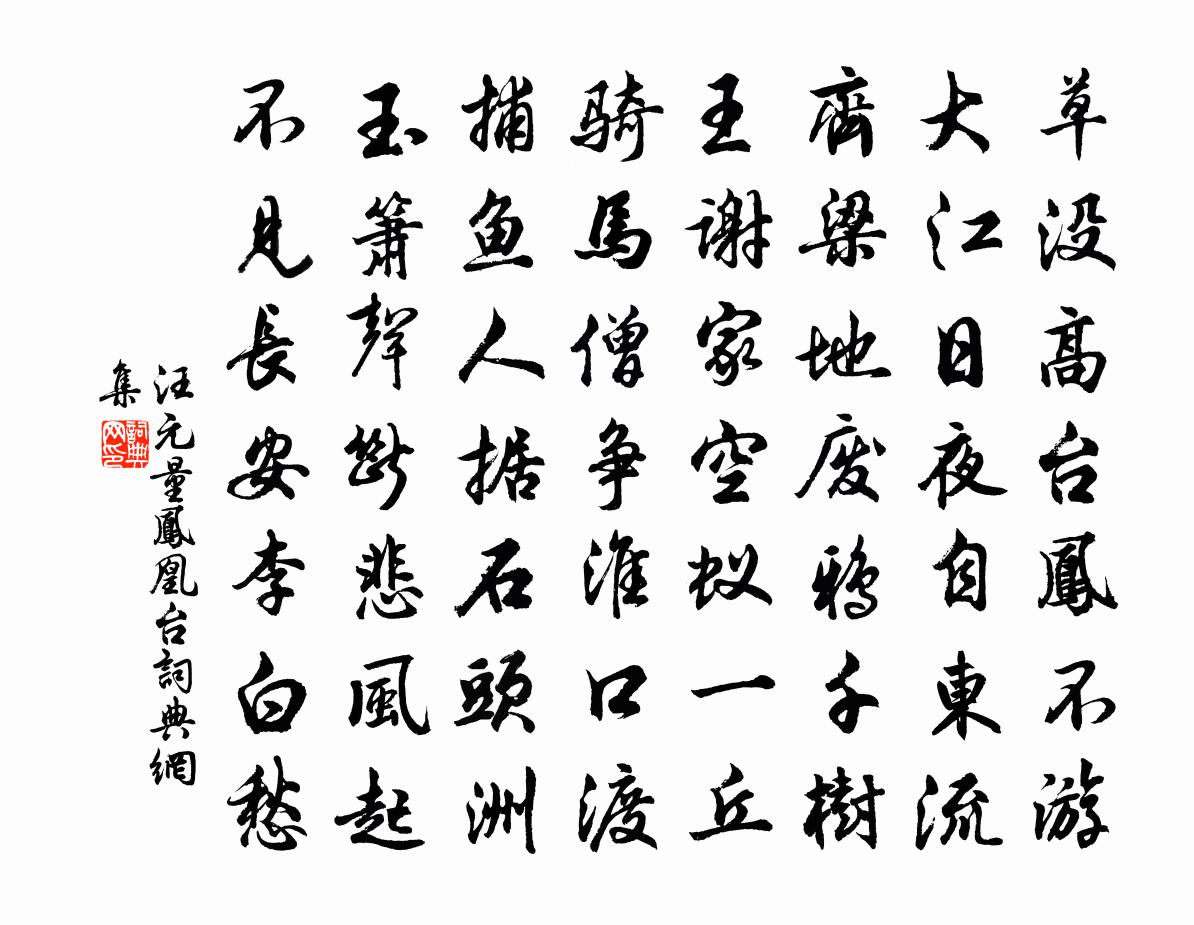 草没高台鳳不游
大江日夜自東流
齊梁地废鴉千樹
王谢家空蚁一丘
骑馬僧争淮口渡
捕鱼人据石頭洲
玉簫聲斷悲風起
不見長安李白愁
汪元量鳳凰台詞典網
集
詞典網印